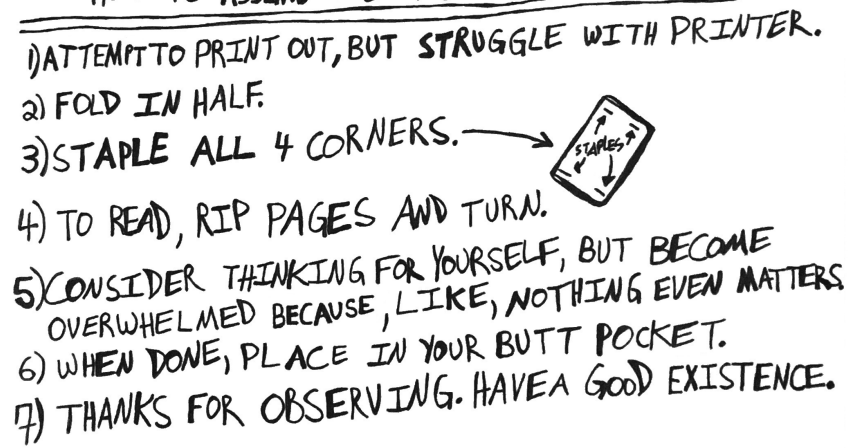 1) ATTEMPT TO PRINT OUT, BUT STRUGGLE WITH PRINTER.
2) FOLD IN HALF.
3) STAPLE ALL 4 CORNERS.
STAPLES
4) TO READ, RIP PAGES AND TURN.
5) CONSIDER THINKING FOR YOURSELF, BUT BECOME
OVERWHELMED BECAUSE, LIKE, NOTHING EVEN MATTERS.
6) WHEN DONE, PLACE IN YOUR BUTT POCKET.
7) THANKS FOR OBSERVING. HAVE A GOOD EXISTENCE.